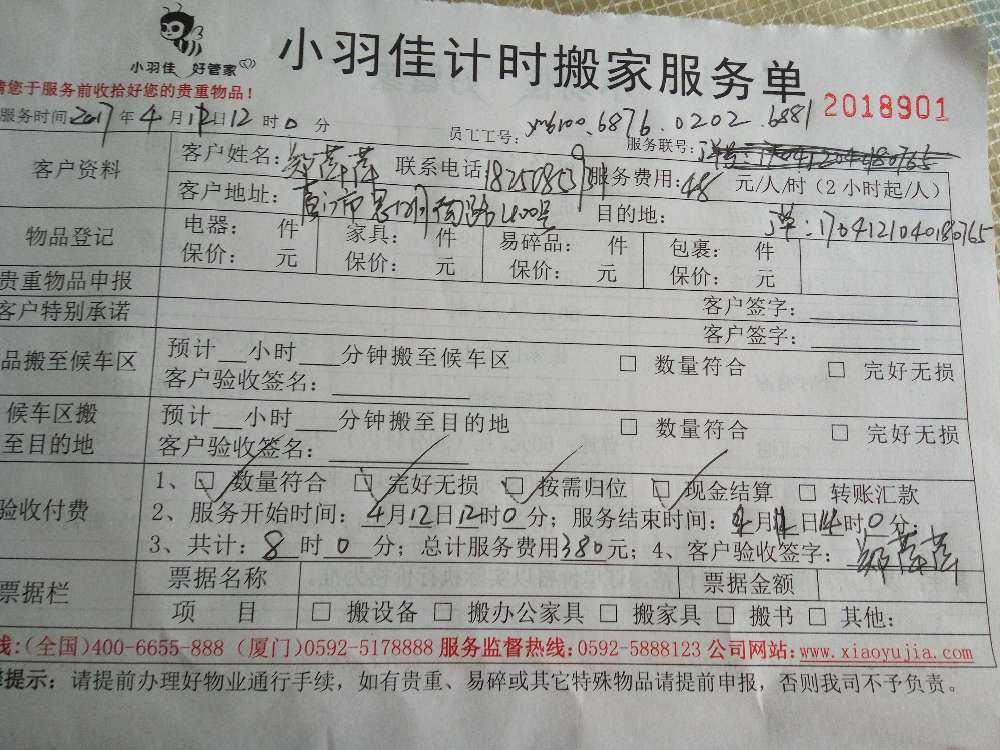 小羽佳 好管家
小羽佳计时搬家服务单
请您于服务前收拾好您的贵重物品！
2018901
服务时间2017年4月12日12时0分
员工工号：xm6100.6876.0202.6881
服务联号：
客户资料
客户姓名： 联系电话 服务费用：48元/人/时（2小时起/人）
客户地址：厦门市思明 400号 目的地：
单：1704121040180765
物品登记
电器： 件 家具： 件 易碎品： 件 包裹： 件
保价： 元 保价： 元 保价： 元 保价： 元
贵重物品申报
客户签字：
客户特别承诺
客户签字：
品搬至候车区
预计__小时___分钟搬至候车区 □ 数量符合 □ 完好无损
客户验收签名：
候车区搬
至目的地
预计__小时___分钟搬至目的地 □ 数量符合 □ 完好无损
客户验收签名：
验收付费
1、☑ 数量符合 ☑ 完好无损 ☑ 按需归位 ☑ 现金结算 □ 转账汇款
2、服务开始时间：4月12日12时0分；服务结束时间：4月12日14时0分；
3、共计：8时0分；总计服务费用380元；4、客户验收签字：
票据栏
票据名称 票据金额
项 目 □ 搬设备 □ 搬办公家具 □ 搬家具 □ 搬书 □ 其他：
线：(全国)400-6655-888 (厦门)0592-5178888 服务监督热线：0592-5888123 公司网站：www.xiaoyujia.com
提示：请提前办理好物业通行手续，如有贵重、易碎或其它特殊物品请提前申报，否则我司不予负责。